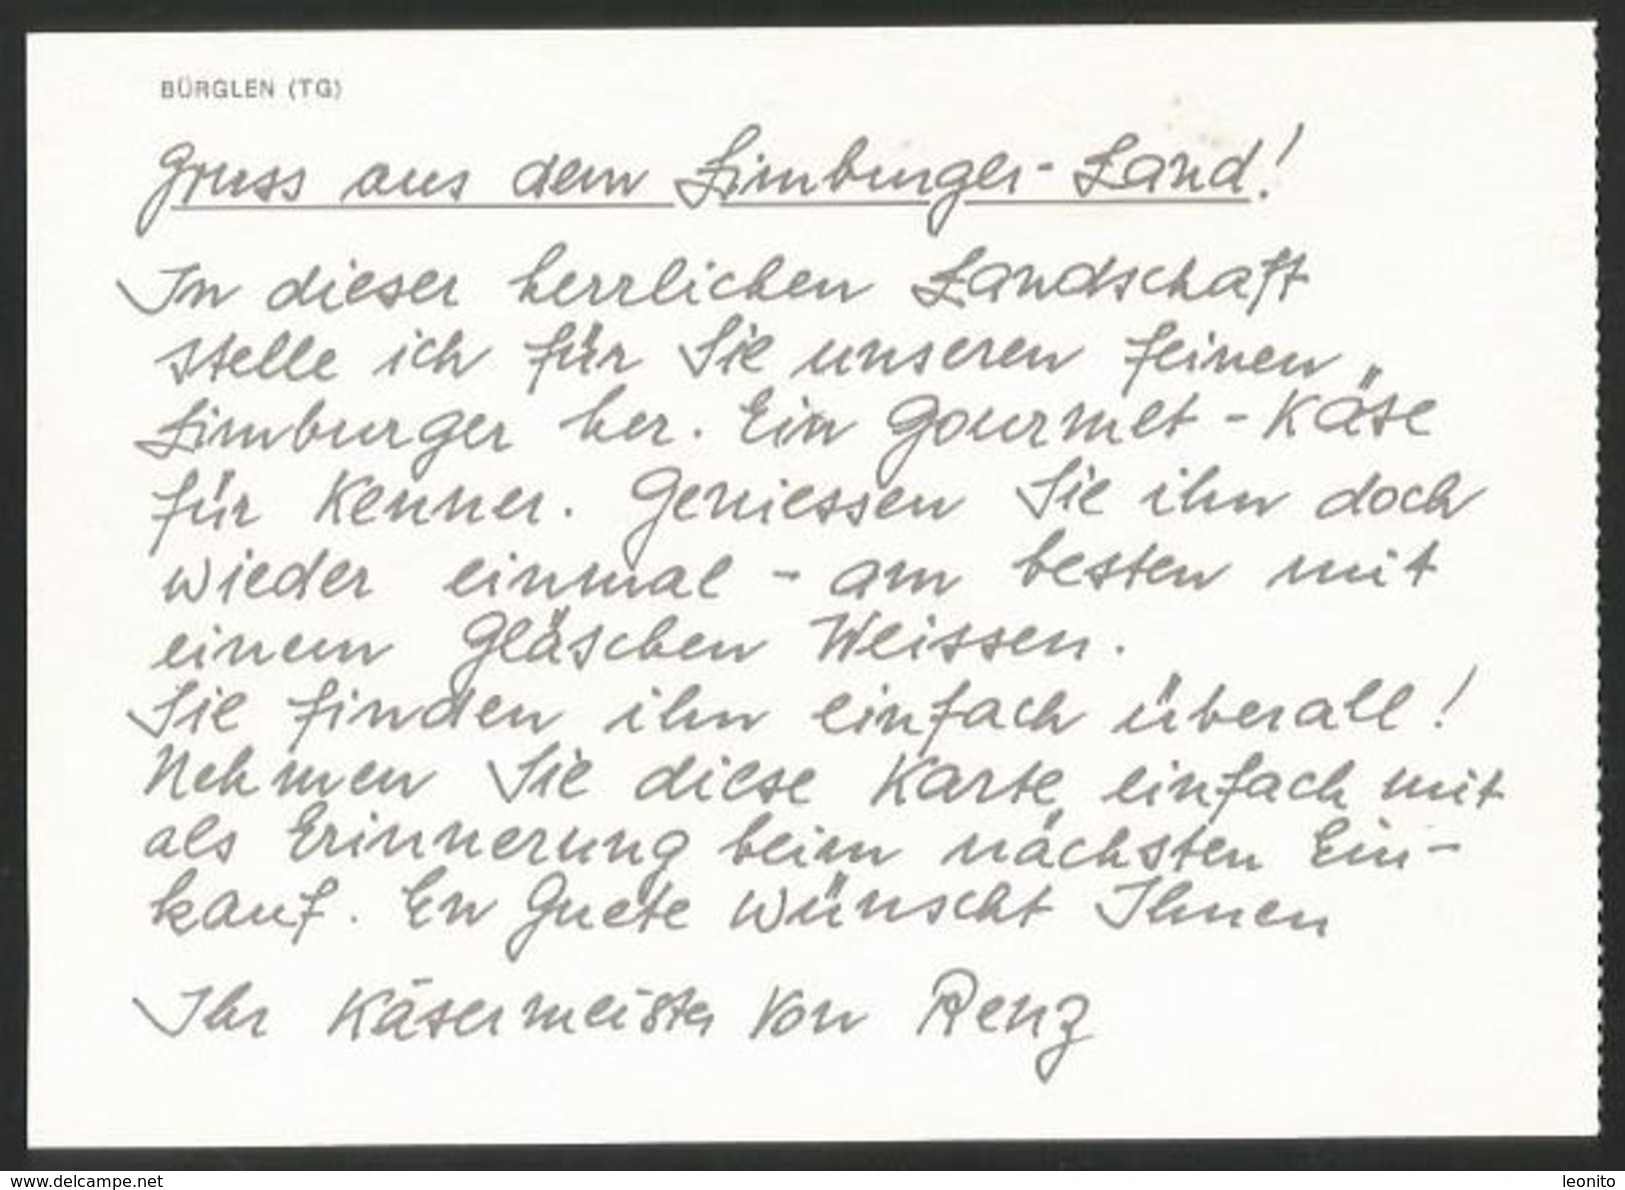 BÜRGLEN (TG)
Gruss aus dem Limburger-Land!
In dieser herrlichen Landschaft
stelle ich für Sie unseren feinen
Limburger her. Ein Gourmet-Käse
für Kenner. Geniessen Sie ihn doch
wieder einmal - am besten mit
einem Gläschen Weissen.
Sie finden ihn einfach überall!
Nehmen Sie diese Karte einfach mit
als Erinnerung beim nächsten Ein-
kauf. En Guete wünscht Ihnen
Ihr Käsermeister von Renz
www.delcampe.net
leonito